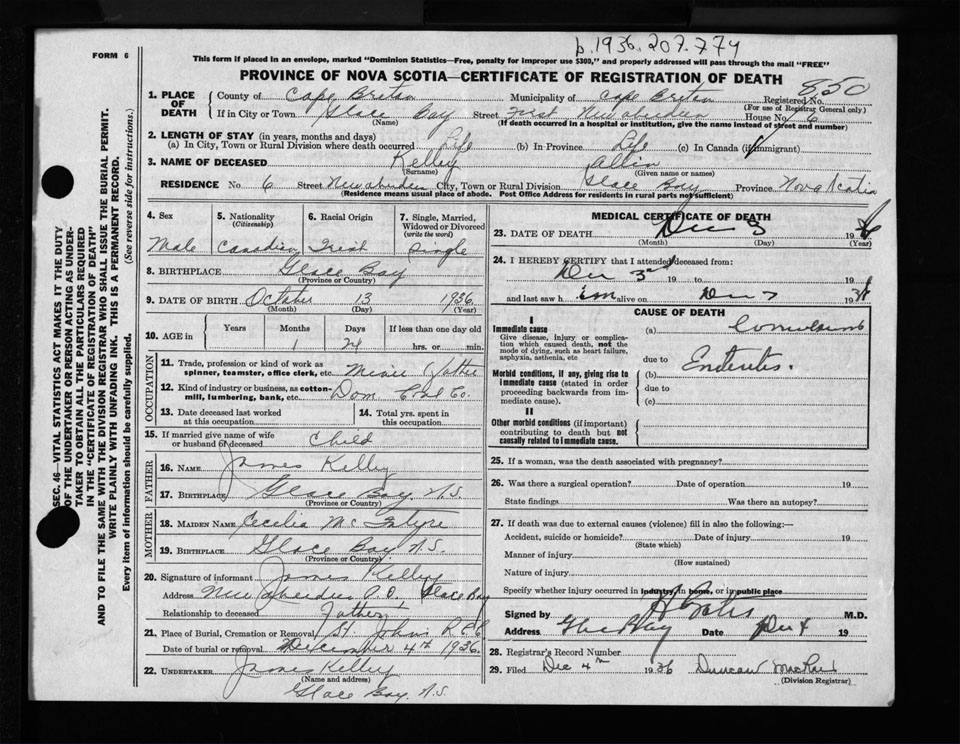 b.1936.207.774
FORM 6
This form if placed in an envelope, marked "Dominion Statistics—Free, penalty for improper use $300," and properly addressed will pass through the mail "FREE"
PROVINCE OF NOVA SCOTIA—CERTIFICATE OF REGISTRATION OF DEATH
850
SEC. 46—VITAL STATISTICS ACT MAKES IT THE DUTY
OF THE UNDERTAKER OR PERSON ACTING AS UNDER-
TAKER TO OBTAIN ALL THE PARTICULARS REQUIRED
IN THE "CERTIFICATE OF REGISTRATION OF DEATH"
AND TO FILE THE SAME WITH THE DIVISION REGISTRAR WHO SHALL ISSUE THE BURIAL PERMIT.
WRITE PLAINLY WITH UNFADING INK. THIS IS A PERMANENT RECORD.
Every item of information should be carefully supplied. (See reverse side for instructions.)
1. PLACE OF DEATH County of Cape Breton Municipality of Cape Breton Registered No.
(For use of Registrar General only)
If in City or Town Glace Bay Street New Aberdeen House No. 6
(Name) (If death occurred in a hospital or institution, give the name instead of street and number)
2. LENGTH OF STAY (in years, months and days)
(a) In City, Town or Rural Division where death occurred Life (b) In Province Life (c) In Canada (if immigrant)
3. NAME OF DECEASED Kelley Allin
(Surname) (Given name or names)
RESIDENCE No 6 Street New Aberdeen City, Town or Rural Division Glace Bay Province Nova Scotia
(Residence means usual place of abode. Post Office Address for residents in rural parts not sufficient)
4. Sex 5. Nationality (Citizenship) 6. Racial Origin 7. Single, Married, Widowed or Divorced (write the word)
Male Canadian Irish Single
8. BIRTHPLACE Glace Bay
(Province or Country)
9. DATE OF BIRTH October 13 1936
(Month) (Day) (Year)
10. AGE in Years Months Days If less than one day old
1 21 hrs. or min.
OCCUPATION
11. Trade, profession or kind of work as
spinner, teamster, office clerk, etc. Father
12. Kind of industry or business, as cotton-
mill, lumbering, bank, etc. Dom Coal Co.
13. Date deceased last worked at this occupation 14. Total yrs. spent in this occupation
15. If married give name of wife
or husband of deceased Child
FATHER
16. Name James Kelley
17. Birthplace Glace Bay N.S.
(Province or Country)
MOTHER
18. Maiden Name Cecelia McIntyre
19. Birthplace Glace Bay N.S.
(Province or Country)
20. Signature of informant James Kelley
Address New Aberdeen Glace Bay
Relationship to deceased Father
21. Place of Burial, Cremation or Removal St. John
Date of burial or removal December 4th 1936
22. UNDERTAKER James Kelley
(Name and address)
Glace Bay, N.S.
MEDICAL CERTIFICATE OF DEATH
23. DATE OF DEATH Dec 3 1936
(Month) (Day) (Year)
24. I HEREBY CERTIFY that I attended deceased from:
Dec 3rd 19 to 19
and last saw h im alive on Dec 193
CAUSE OF DEATH
I
Immediate cause
Give disease, injury or complication which caused death, not the mode of dying, such as heart failure, asphyxia, asthenia, etc
(a) Convulsions
due to
Morbid conditions, if any, giving rise to immediate cause (stated in order proceeding backwards from immediate cause).
(b) Enteritis.
due to
(c)
II
Other morbid conditions (if important) contributing to death but not causally related to immediate cause.
25. If a woman, was the death associated with pregnancy?
26. Was there a surgical operation? Date of operation 19
State findings Was there an autopsy?
27. If death was due to external causes (violence) fill in also the following:—
Accident, suicide or homicide? Date of injury 19
(State which)
Manner of injury
(How sustained)
Nature of injury
Specify whether injury occurred in industry, in home, or in public place
Signed by M.D.
Address Glace Bay Date Dec 4 19
28. Registrar's Record Number
29. Filed Dec 4th 1936 Duncan
(Division Registrar)